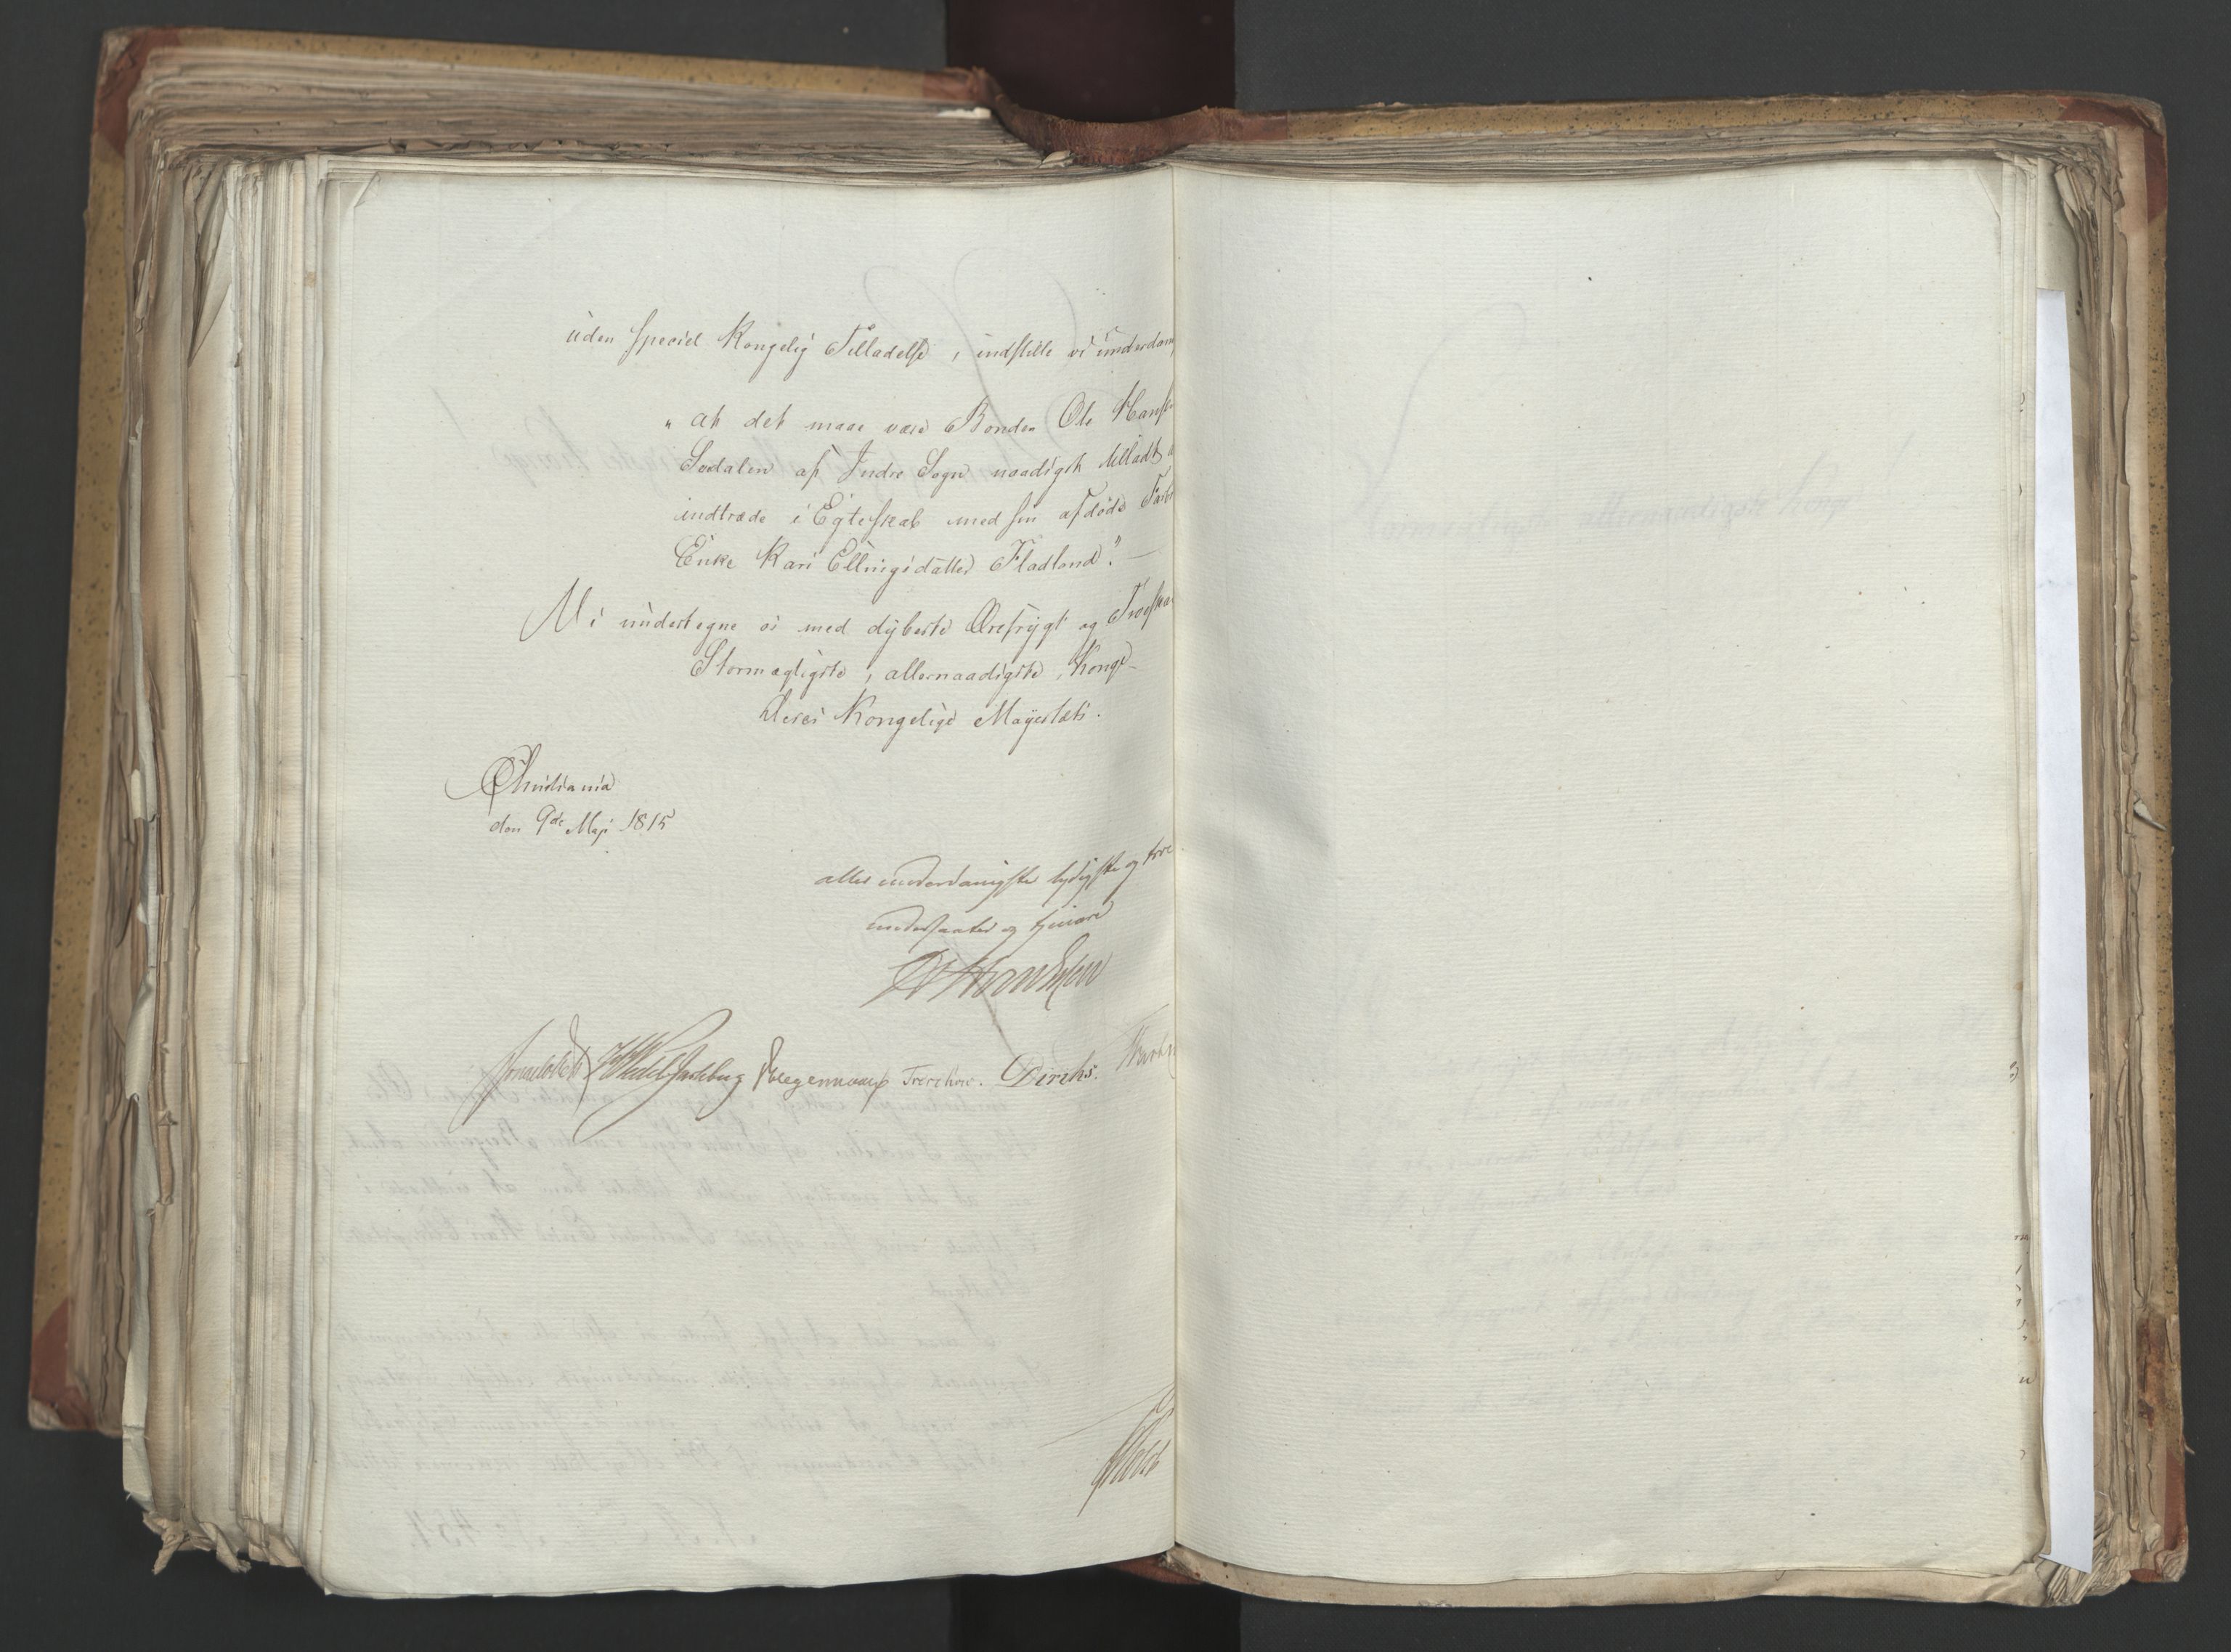 uden speciel Kongelig Tilladelse, indstille vi underdan
" at det maae være Bonden Ole Hans
af Indre Sogn naadigst tilladt a
indtræde i Egteskab med sin afdøde Farb
Enke Kari Ellingsdatter Fladland." —
Vi undertegne os med dybeste Ærefrygt og Troeska
Stormægtigste, allernaadigste Konge
Deres Kongelige Majestæts.
Christiania
den 9de Maji 1815
aller underdanigste lydigste og troe
undersaatter og tjenere
Sommerfeldt Wedel Jarlsberg Hegermann Treschow. Diriks.